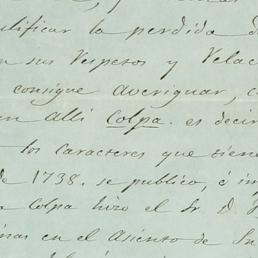 la perdida d
sus Vesperos y Vela
consigue averiguar, c
alli Colpa. es decir
los caracteres que tiene
de 1738. se publico, ó im
Colpa hizo el Sr. D
en el Asiento de Su